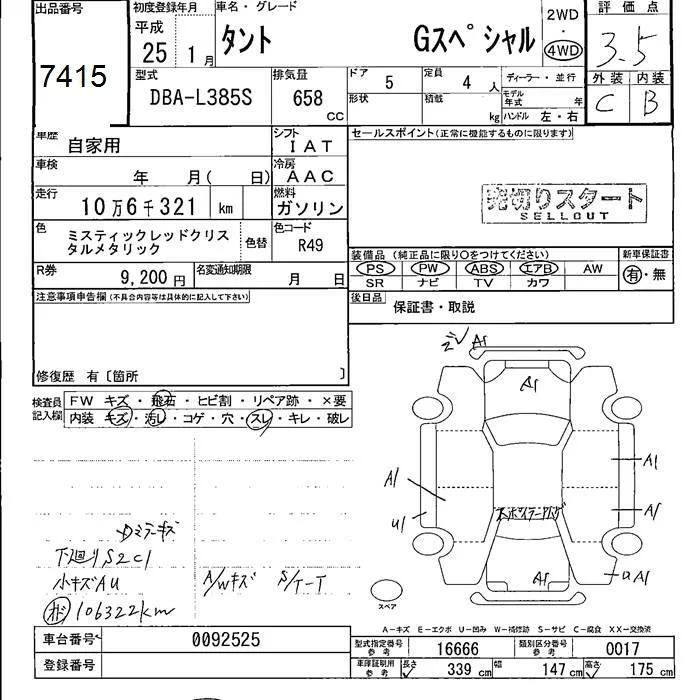 出品番号
7415
初度登録年月
平成
25 1月
車名・グレード
タント Gスペシャル
2WD
・
4WD
評価点
3.5
型式
DBA-L385S
排気量
658
CC
ドア 5
定員 4 人
ディーラー・並行
形状
積載 kg
モデル年式 年
ハンドル 左・右
外装 内装
C B
車歴 自家用
シフト IAT
車検 年 月( 日)
冷房 AAC
走行 10万6千321 km
燃料 ガソリン
色 ミスティックレッドクリスタルメタリック
色替
色コード R49
R券 9,200円
名変通知期限 月 日
セールスポイント(正常に機能するものに限ります)
売切りスタート
SELLOUT
装備品 (純正品に限り○をつけてください)
新車保証書
PS PW ABS エアB AW
SR ナビ TV カワ
有・無
後日品 保証書・取説
注意事項申告欄(不具合内容等は具体的に記入して下さい)
修復歴 有〔箇所 〕
検査員記入欄
FW キズ・飛石・ヒビ割・リペア跡・×要
内装 キズ・汚レ・コゲ・穴・スレ・キレ・破レ
Dミラーキズ
下廻りS2C1
小キズAU A/Wキズ S/T-T
106322km
A1
A1
A1
A1
U1
スペア
A-キズ E-エクボ U-凹み W-補修跡 S-サビ C-腐食 XX-交換済
車台番号 0092525
登録番号
型式指定番号 参考 16666
類別区分番号 参考 0017
車庫証明用 参考 長さ 339 cm 幅 147 cm 高さ 175 cm